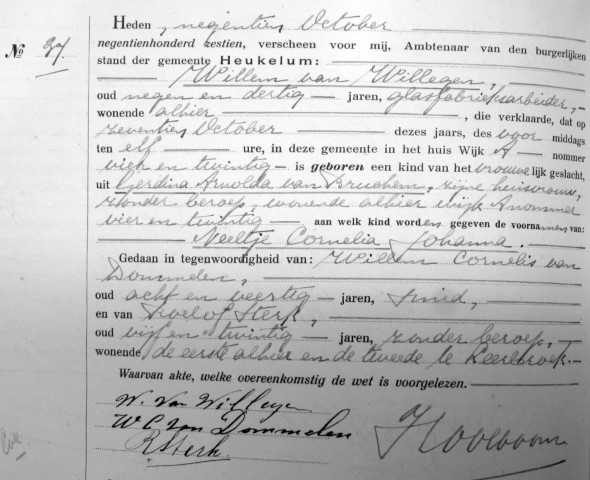 Heden, negentien October
№ 37. negentienhonderd zestien, verscheen voor mij, Ambtenaar van den burgerlijken
stand der gemeente Heukelum:
Willem van Willegen,
oud negen en dertig — jaren, glasfabrieksarbeider, —
wonende alhier, die verklaarde, dat op
zeventien October dezes jaars, des voor middags
ten elf ure, in deze gemeente in het huis Wijk A nommer
vier en twintig — is geboren een kind van het vrouwelijk geslacht,
uit Gerdina Arnolda van Bruchem, zijne huisvrouw,
zonder beroep, wonende alhier wijk A nommer
vier en twintig — aan welk kind worden gegeven de voornamen van:
Neeltje Cornelia Johanna.
Gedaan in tegenwoordigheid van: Willem Cornelis van
Dommelen,
oud acht en veertig — jaren, smid,
en van Roelof Sterk,
oud vijf en twintig — jaren, zonder beroep,
wonende de eerste alhier en de tweede te Leerbroek. —
Waarvan akte, welke overeenkomstig de wet is voorgelezen.
W. van Willegen
W C van Dommelen
R Sterk.